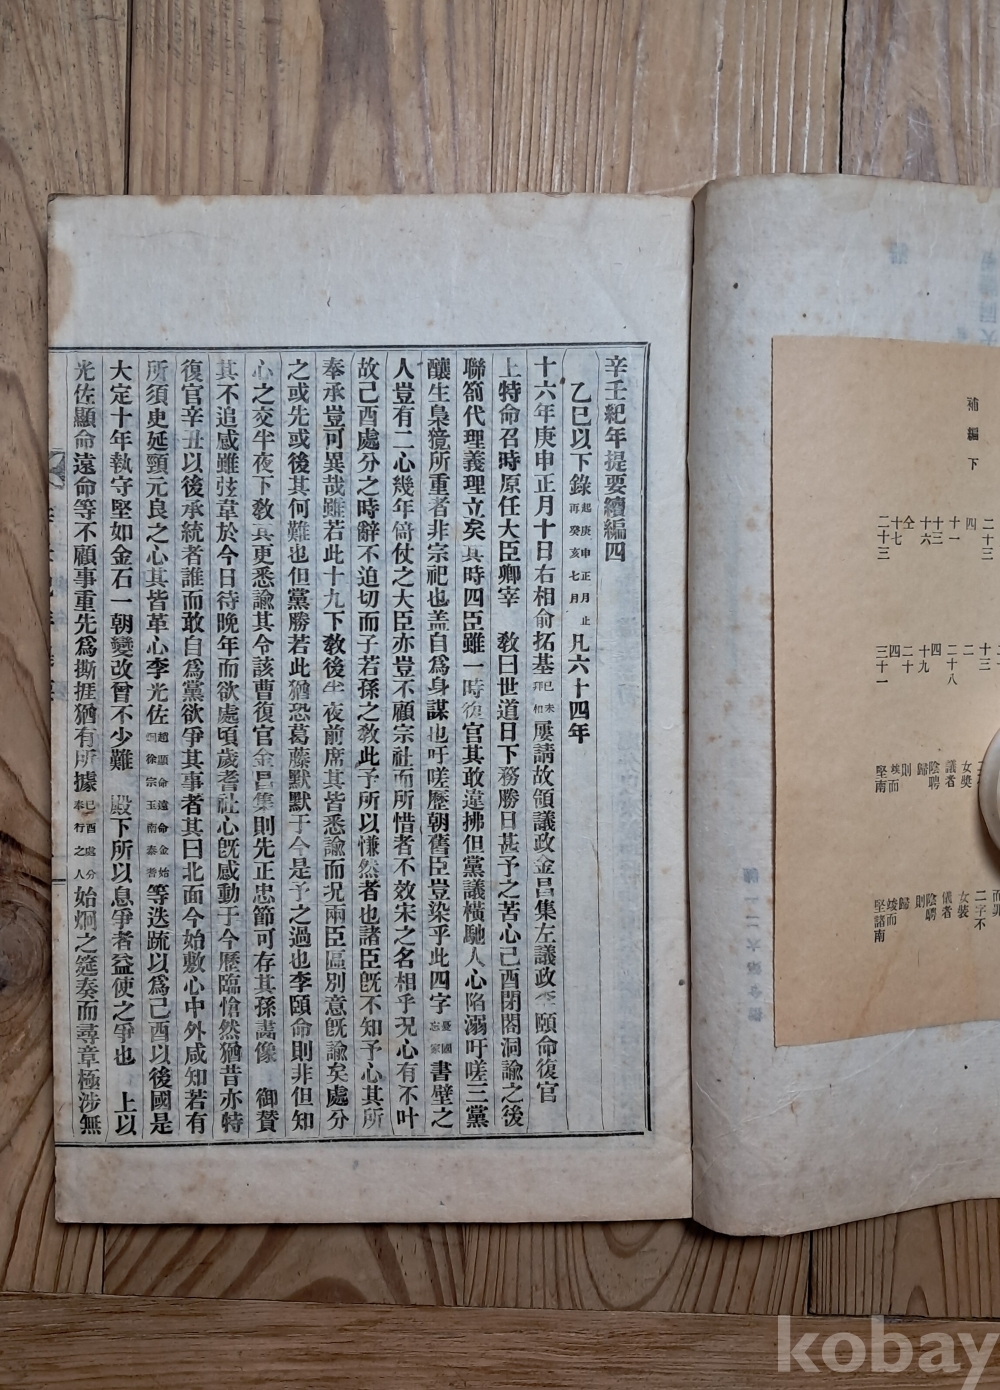 辛壬紀年提要續編四
乙巳以下錄起庚申正月止再癸亥七月凡六十四年
十六年庚申正月十日右相俞拓基屢請故領議政金昌集左議政李頤命復官
上特命召時原任大臣卿宰 敎曰世道日下務勝日甚予之苦心己酉閉閤洞諭之後
聯箚代理義理立矣其時四臣雖一時復官其敢違拂但黨議橫馳人心陷溺吁嗟三黨
釀生梟獍所重者非宗祀也盖自爲身謀也吁嗟歷朝舊臣豈染乎此四字憂國忘家書壁之
人豈有二心幾年倚仗之大臣亦豈不顧宗社而所惜者不效宋之名相乎況心有不叶
故己酉處分之時辭不迫切而子若孫之敎此予所以慊然者也諸臣旣不知予心其所
奉承豈可異哉雖若此十九下敎後半夜前席其皆悉諭而況兩臣區別意旣諭矣處分
之或先或後其何難也但黨勝若此猶恐葛藤默默于今是予之過也李頤命則非但知
心之交半夜下敎其更悉諭其令該曹復官金昌集則先正忠節可存其孫畵像 御贊
其不追感雖弦韋於今日待晚年而欲處頃歲耆社心旣感動于今歷臨愴然猶昔亦特
復官辛丑以後承統者誰而敢自爲黨欲爭其事者其曰北面今始敷心中外咸知若有
所須史延頸元良之心其皆革心李光佐趙顯命遠命金始炯徐宗玉南泰耆等迭疏以爲己酉以後國是
大定十年執守堅如金石一朝變改曾不少難 殿下所以息爭者益使之爭也 上以
光佐顯命遠命等不顧事重先爲撕捱猶有所據己酉處分奉行之人始炯之筵奏而尋章極涉無
補編下
二十三
十一
四
十三
十六
仝
十七
二十三
十三
二
二十八
四
十九
二十
四
三十一
女奬
議者
陰聘
歸
則
竣而
堅南
而罪
二字不
女裝
儀者
陰聘
則
歸
竣而
堅諸南
kobay